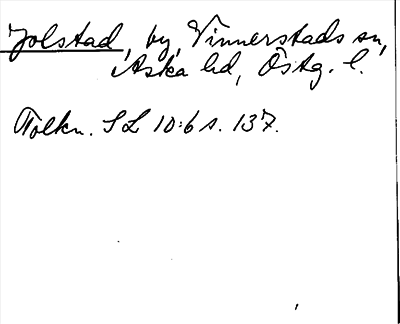 Jolstad, by, Vinnerstads sn,
Aska hd, Östg. l.
Tolkn. SL 10:6 s. 137.